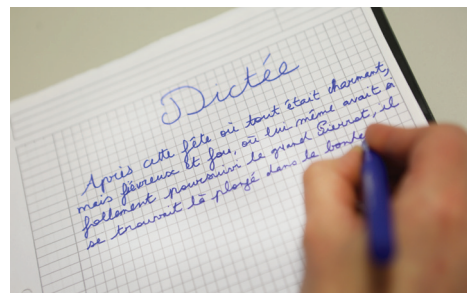 Dictée
Après cette fête où tout était charmant,
mais fiévreux et fou, où lui même avait si
follement poursuivi le grand Pierrot, il
se trouvait là plongé dans le